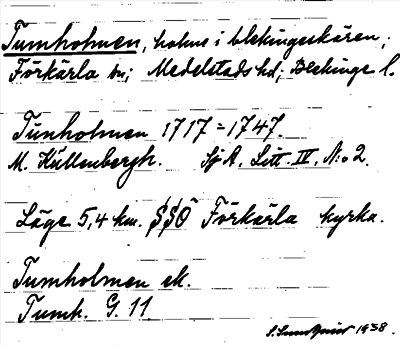 Tumholmen, holme i blekingeskären;
Förkärla sn; Medelstads hd; Blekinge l.
Tunholmen 1717-1747.
M. Küllenbergh. Sj. K. Litt. IV. N:o 2.
Läge 5,4 km. SSO Förkärla kyrka.
Tumholmen ek.
Tumh. G. 11
1938.